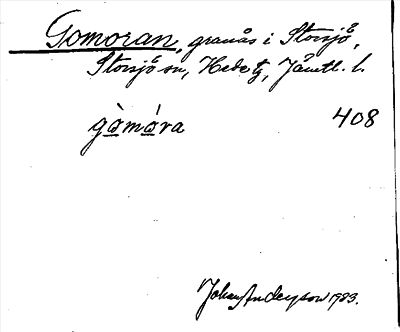 Gomoran, granås i Storsjö,
Storsjö sn, Hede tg, Jämtl. l.
gòmóra 408
Johan Anderson 1983.